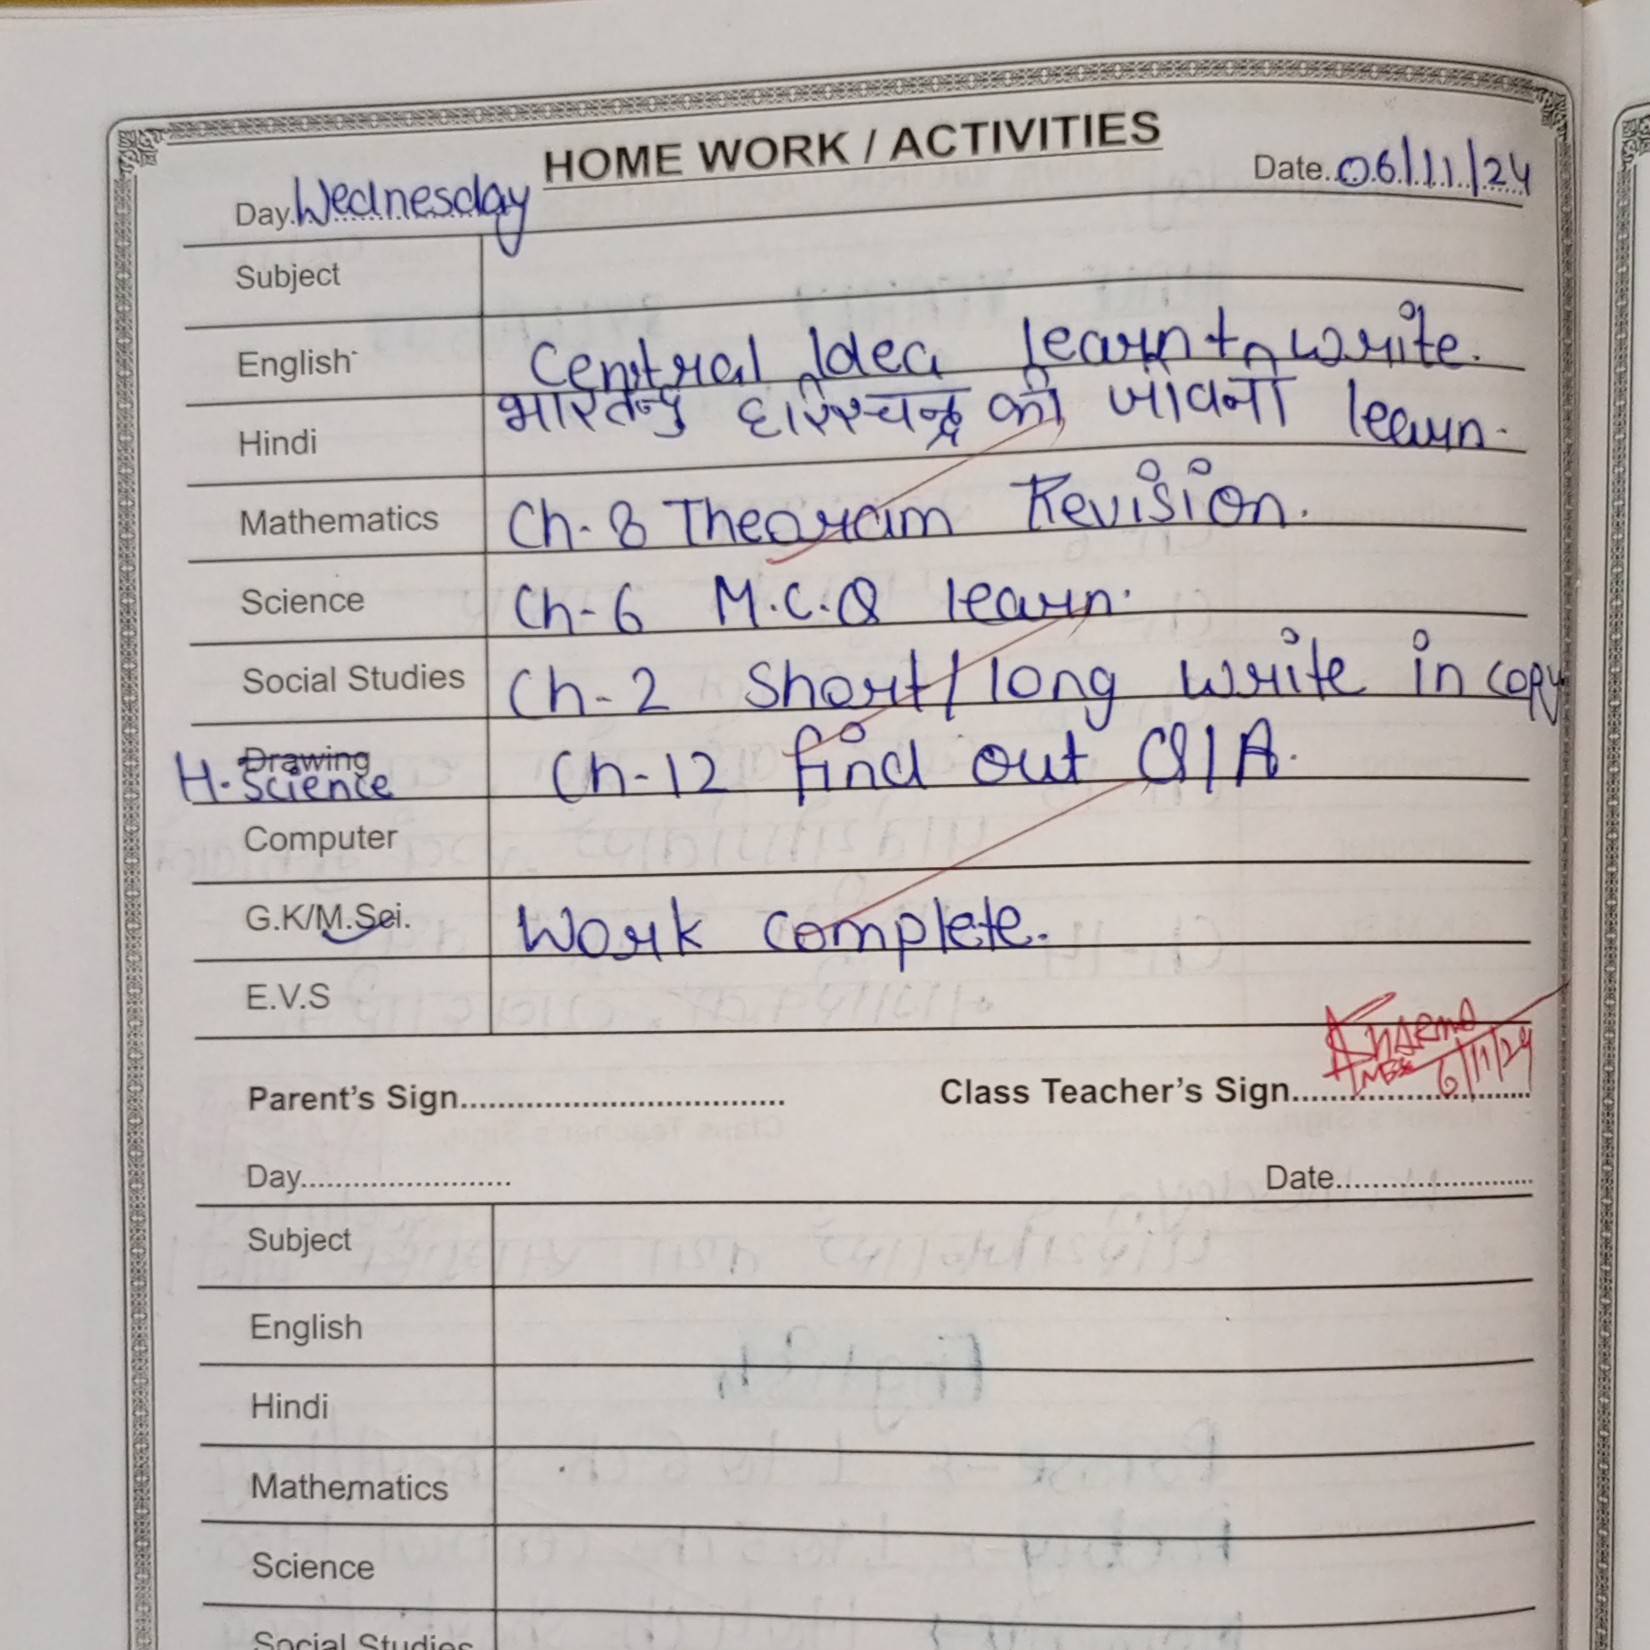 HOME WORK / ACTIVITIES
Day.Wednesday Date..06/11/24
Subject
English Central Idea learn to write.
Hindi भारतेन्दु हरिश्चन्द्र की जीवनी learn.
Mathematics Ch-8 Thearam Revision.
Science Ch-6 M.C.Q learn.
Social Studies Ch-2 Short/long write in copy
Drawing
H. Science Ch-12 find out Q/A.
Computer
G.K/M.Sci. Work complete.
E.V.S
Parent's Sign.................................... Class Teacher's Sign.......................... 6/11/24
Day....................... Date.....................
Subject
English
Hindi
Mathematics
Science
Social Studies